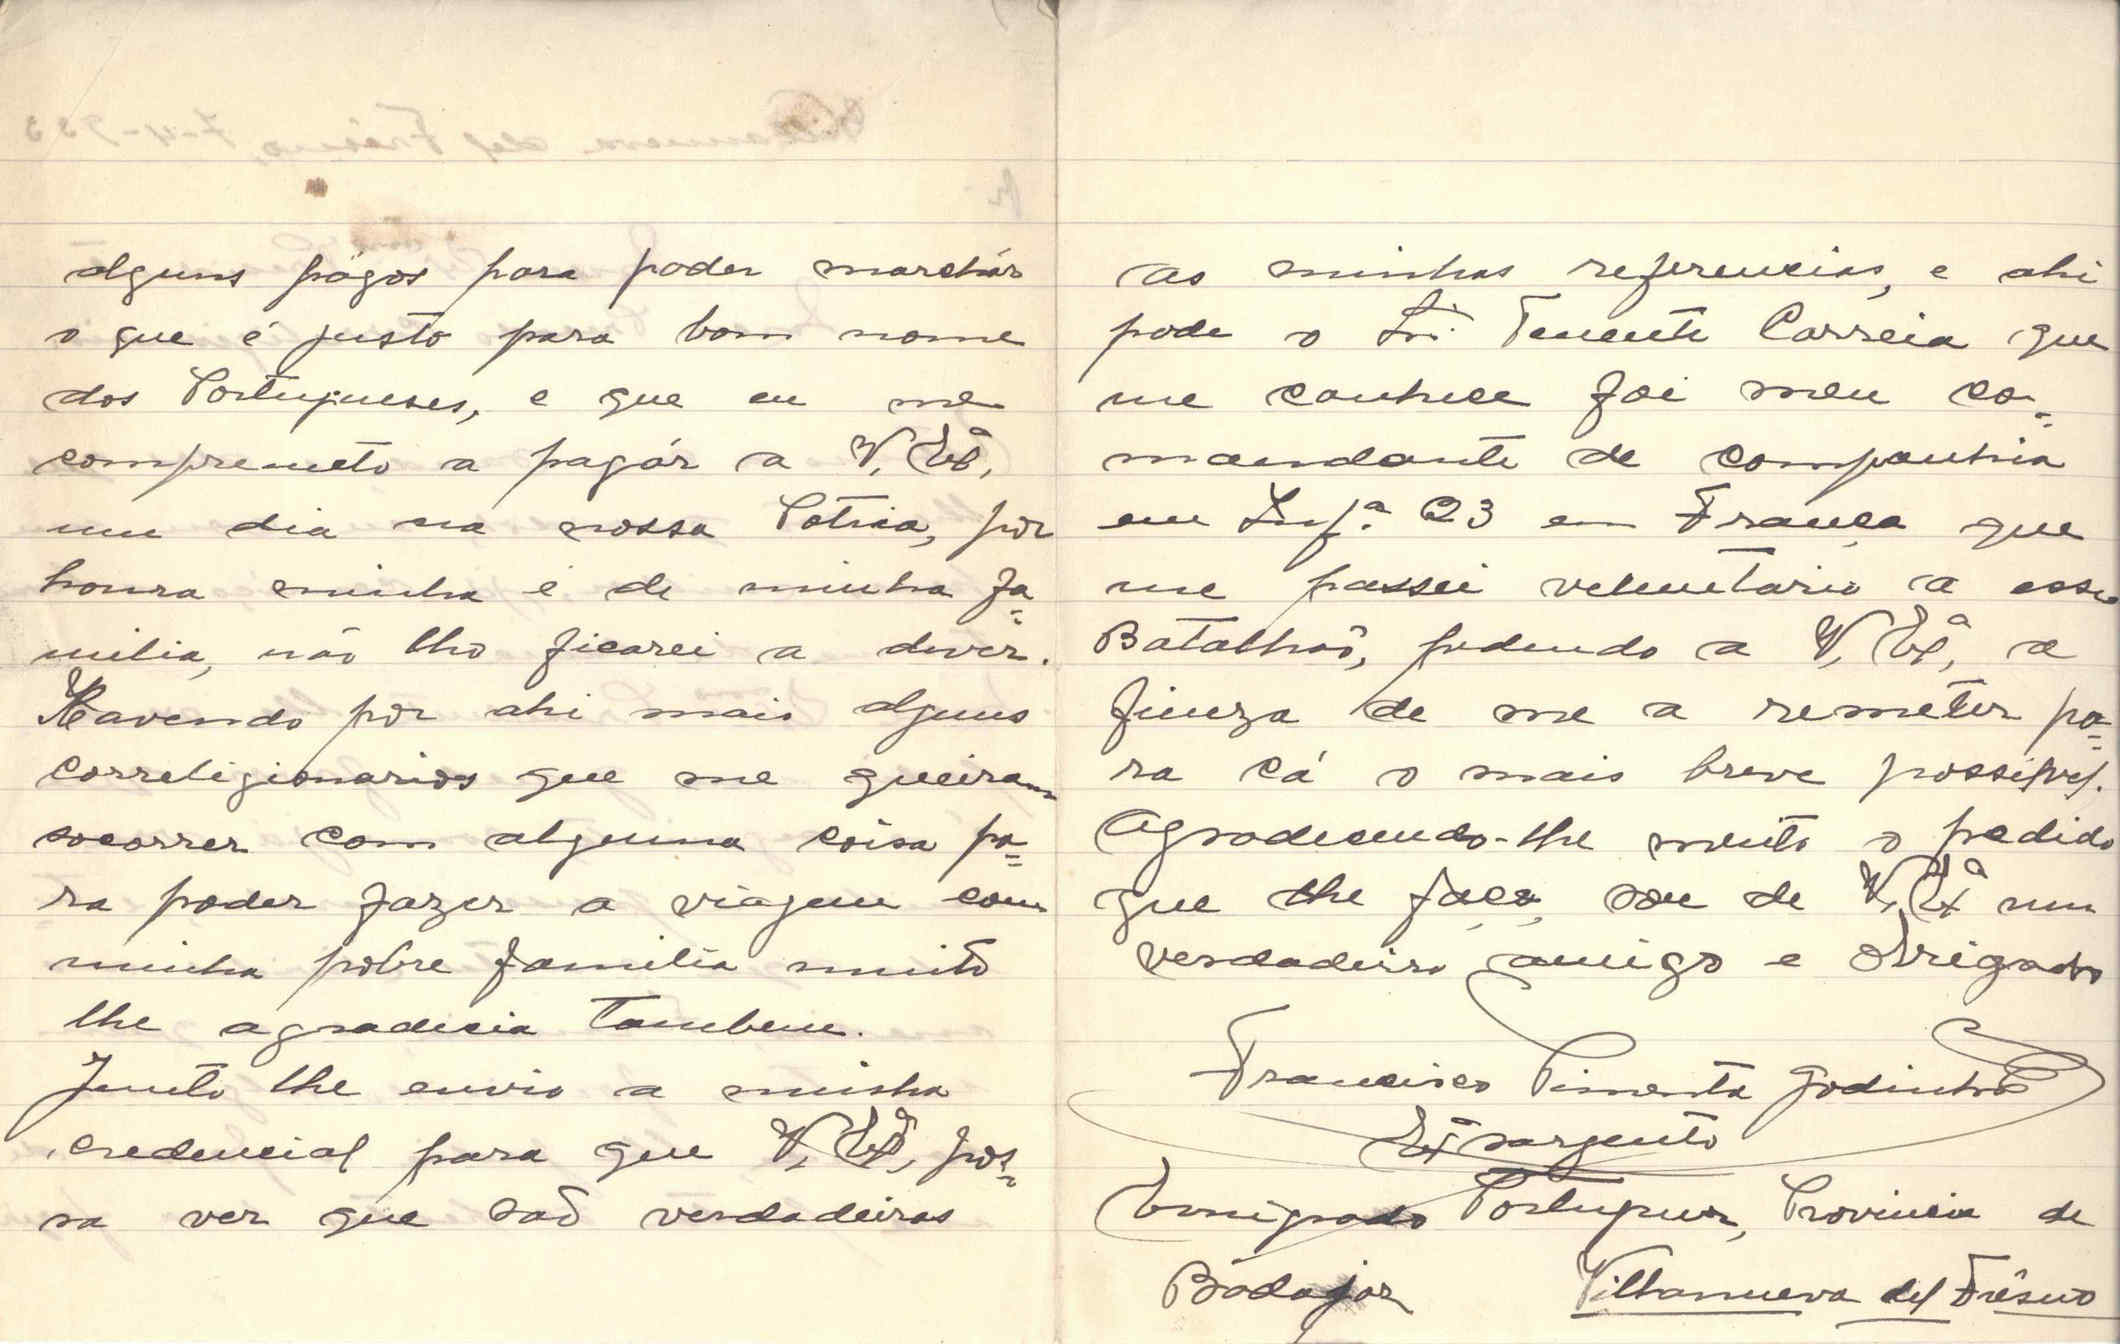 alguns págos para poder marchár
o que é justo para bom nome
dos Portugueses, e que eu me
compremeto a pagár a V, Exª,
um dia na nossa Patria, por
honra minha e de minha fa=
milia, não lho ficarei a dever.
Havendo por ahi mais alguns
correligionarios que me queiram
socorrer com alguma coisa pa=
ra poder fazer a viagem com
minha pobre familia muito
lhe agradecia tambem.
Junto lhe envio a minha
credencial para que V, Exª, pos=
sa ver que saõ verdadeiras
as minhas referencias, e ahi
pode o Snr. Tenente Correia que
me conhece foi meu co=
mandante de companhia
em Infª. 23 em França que
me passei veluntario a esse
Batalhaõ, pedendo a V, Exª, a
fineza de me a remeter pa=
ra cá o mais breve possivel.
Agradecendo-lhe muito o pedido
que lhe faço, sou de V, Exª um
verdadeiro amigo e obrigado
Francisco Pimenta Godinho
Exª sargento
Emigrado Portuguez, Provincia de
Badajoz Villanueva del Frésno
Villanueva del Frésno, 7-4-933